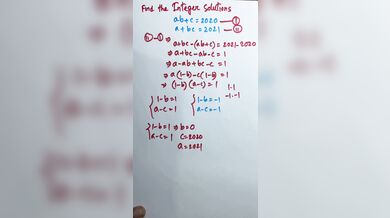 Find the Integer Solutions
ab+c = 2020 —— Ⓘ
a+bc = 2021 —— Ⓘⓘ
Ⓘⓘ-Ⓘ ⇒ a+bc-(ab+c) = 2021-2020
⇒ a+bc-ab-c = 1
⇒ a-ab+bc-c = 1
⇒ a(1-b)-c(1-b) = 1
⇒ (1-b)(a-c) = 1
1·1
-1·-1
{ 1-b=1 { 1-b=-1
a-c=1 a-c=-1
{ 1-b=1 ⇒ b=0
a-c=1 c=2020
a=2021